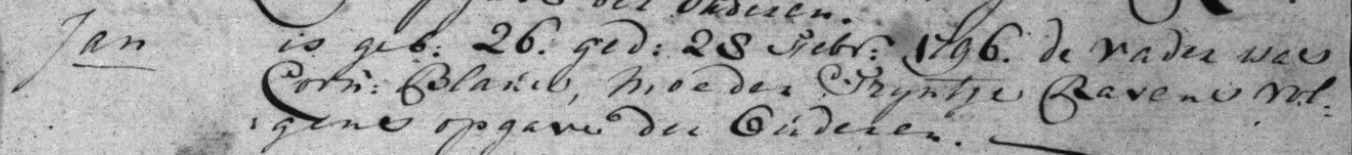 der Ouderen.
Jan is geb: 26. ged: 28 Febr: 1796. de vader was
Corn: Blauw, Moeder Tryntje Ravens vol:
gens opgave der Ouderen.